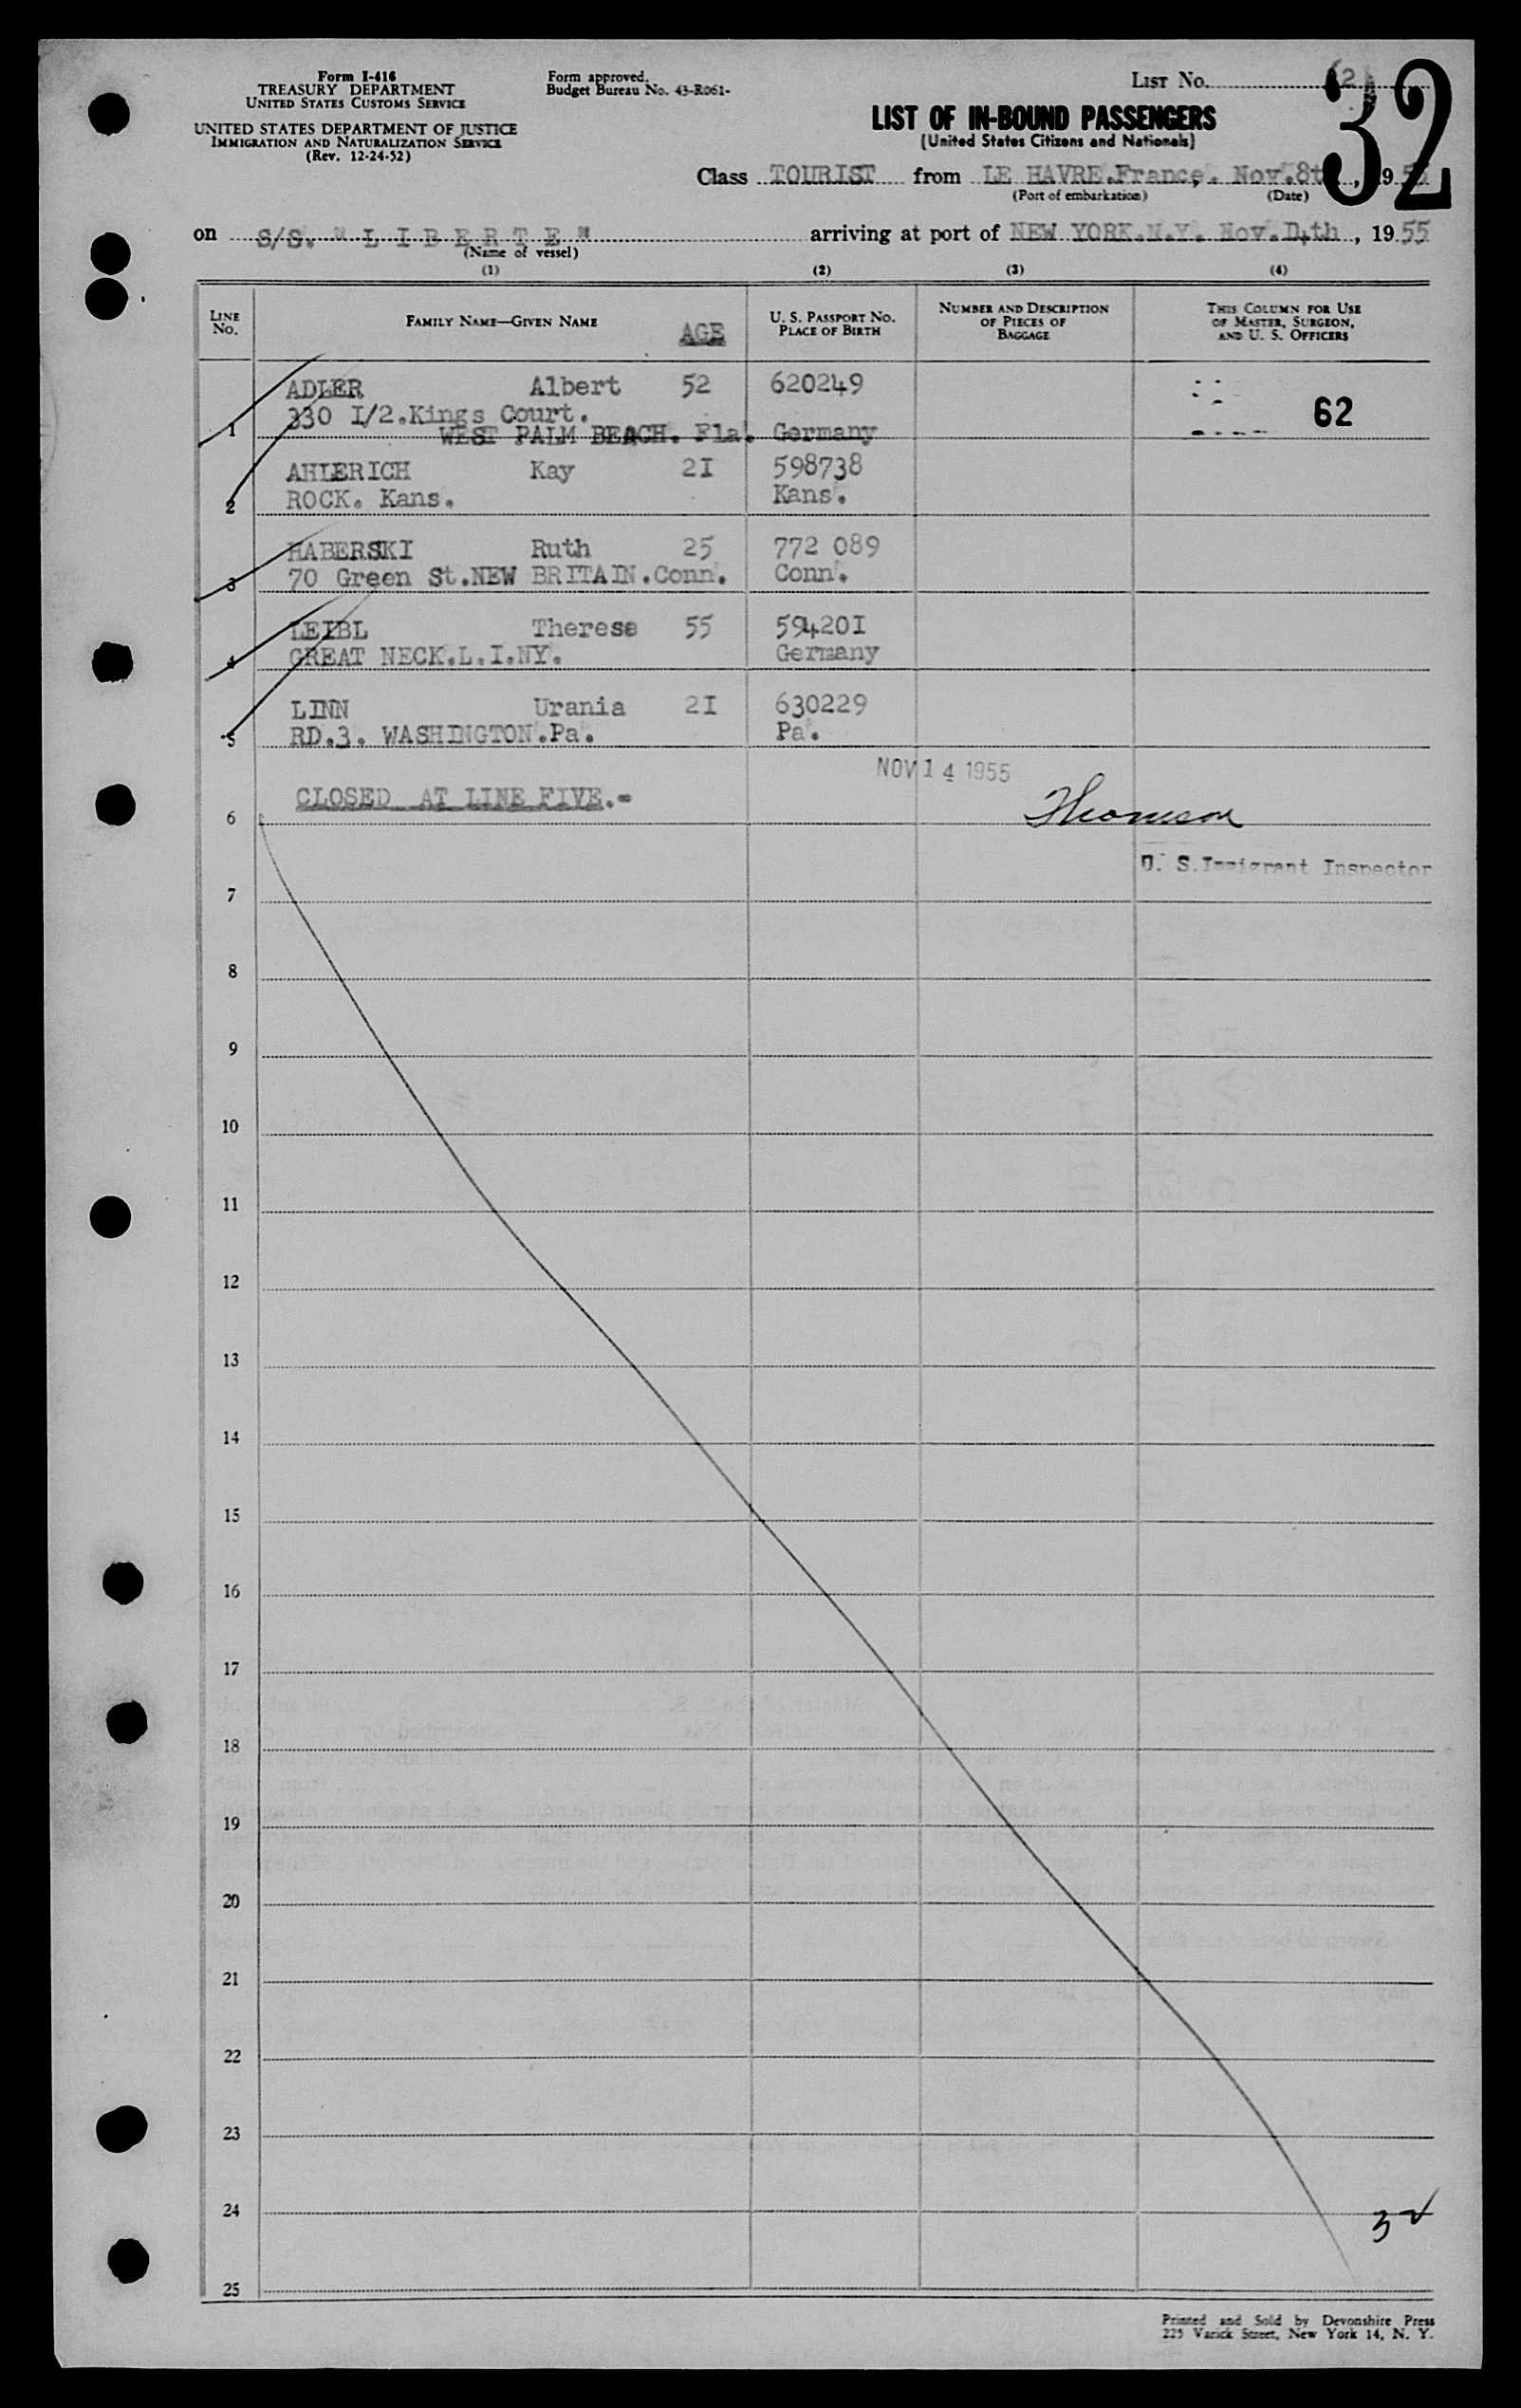 Form I-416
TREASURY DEPARTMENT
UNITED STATES CUSTOMS SERVICE
UNITED STATES DEPARTMENT OF JUSTICE
IMMIGRATION AND NATURALIZATION SERVICE
(Rev. 12-24-52)
Form approved.
Budget Bureau No. 43-R061-
LIST No.
32
LIST OF IN-BOUND PASSENGERS
(United States Citizens and Nationals)
Class TOURIST from LE HAVRE.France, Nov.8th, 1955
(Port of embarkation) (Date)
on S/S. "L I B E R T E" arriving at port of NEW YORK.N.Y. Nov.I4th, 1955
(Name of vessel)
(1) (2) (3) (4)
LINE No. FAMILY NAME—GIVEN NAME AGE U. S. PASSPORT No. PLACE OF BIRTH NUMBER AND DESCRIPTION OF PIECES OF BAGGAGE THIS COLUMN FOR USE OF MASTER, SURGEON, AND U. S. OFFICERS
ADLER Albert 52 620249
330 I/2.Kings Court. 62
1 WEST PALM BEACH. Fla. Germany
AHLERICH Kay 2I 598738
2 ROCK. Kans. Kans.
HABERSKI Ruth 25 772 089
3 70 Green St.NEW BRITAIN.Conn. Conn.
LEIBL Therese 55 59420I
4 GREAT NECK.L.I.NY. Germany
LINN Urania 2I 630229
5 RD.3. WASHINGTON.Pa. Pa.
NOV 14 1955
CLOSED AT LINE FIVE.-
6 Thomson
U. S. Immigrant Inspector
7
8
9
10
11
12
13
14
15
16
17
18
19
20
21
22
23
24 32
25
Printed and Sold by Devonshire Press
225 Varick Street, New York 14, N. Y.